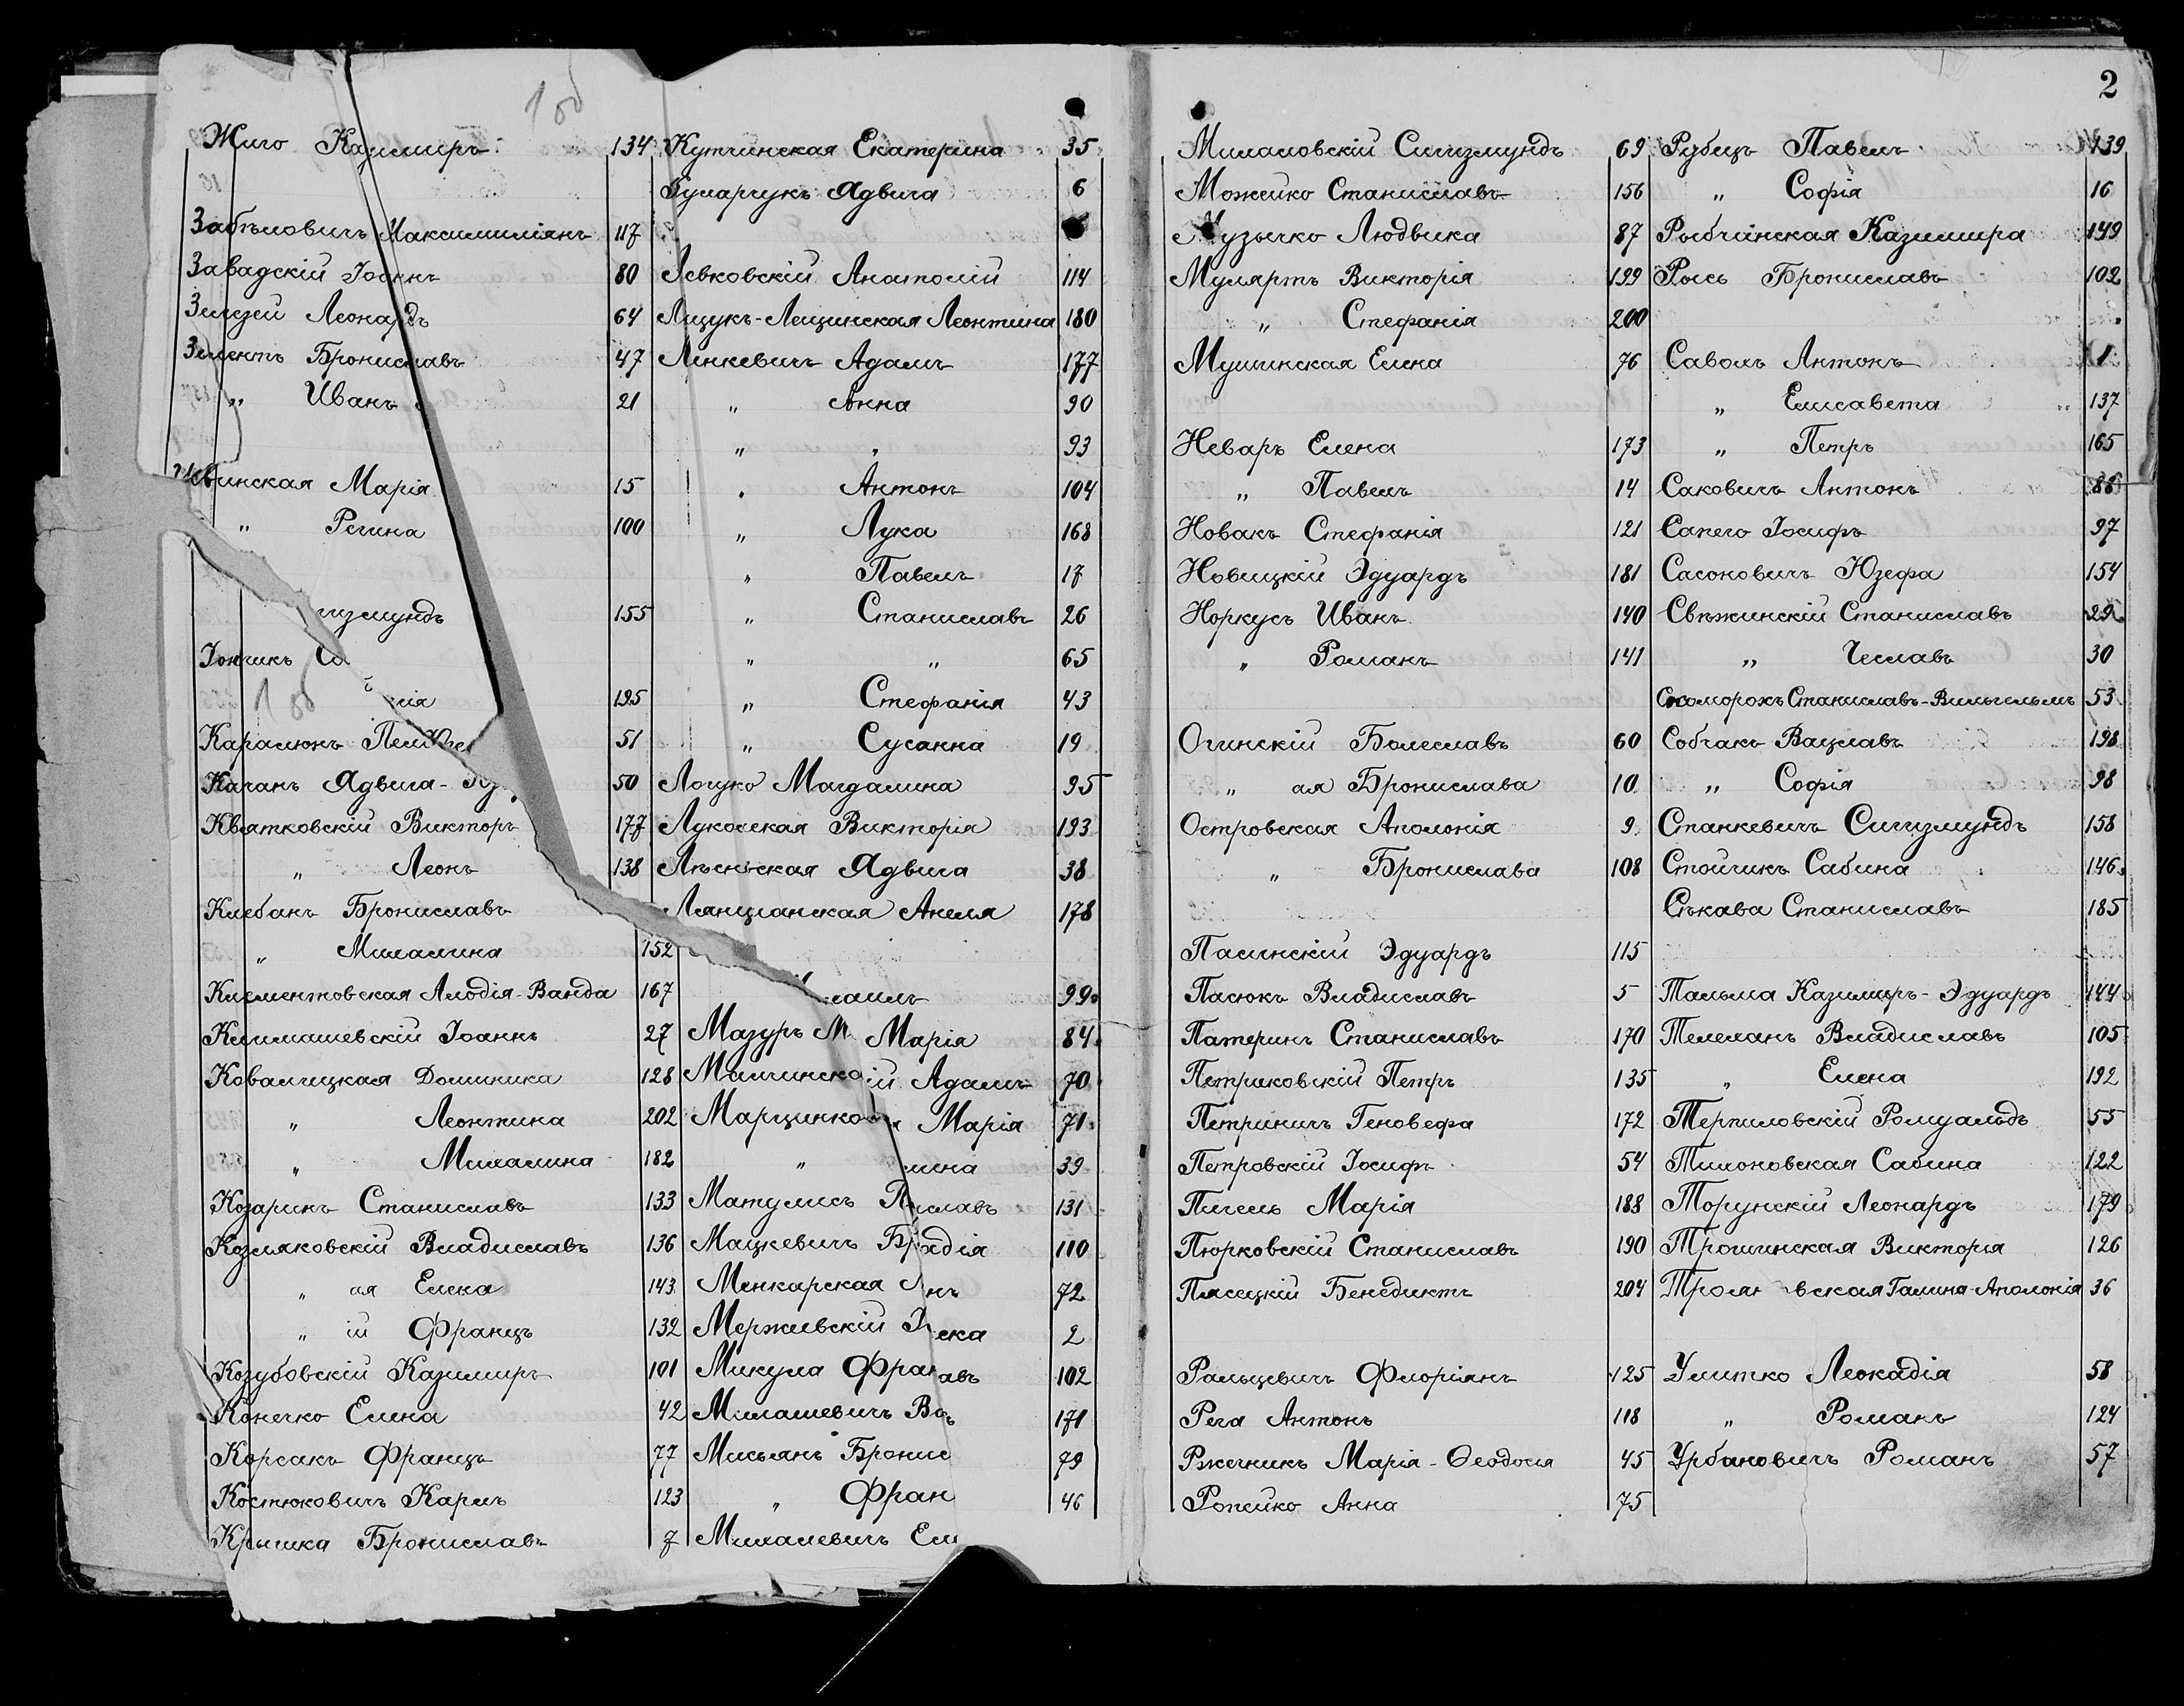 2
100
Жиго Казимиръ 134
Забѣловичъ Максимиліянъ 117
Завадскій Іоаннъ 80
Зелезей Леонардъ 64
Зементъ Брониславъ 47
„ Иванъ 21
Марія 15
„ Регина 100
гизмундъ 155
Іончикъ
100
195
Каралюкъ 51
Качанъ Ядвига- 50
Квятковскій Викторъ 177
„ Леонъ 138
Клебанъ Брониславъ
„ Михалина 152
Клементовская Алодія-Ванда 167
Климашевскій Іоаннъ 27
Ковальчицкая Доминика 128
„ Леонтина 202
„ Михалина 182
Козаринъ Станиславъ 133
Козляковскій Владиславъ 136
„ ая Елена 143
„ ій Францъ 132
Козубовскій Казимиръ 101
Конечко Елена 42
Корсакъ Францъ 77
Костюковичъ Карлъ 123
Крышка Брониславъ 7
Кутчинская Екатерина 35
Ядвига 6
Левковскій Анатолій 114
Лещукъ-Лещинская Леонтина 180
Ленкевичъ Адамъ 177
„ Анна 90
„ „ 93
„ Антонъ 104
„ Лука 168
„ Павелъ 17
„ Станиславъ 26
„ „ 65
„ Стефанія 43
„ Сусанна 19
Логуко Магдалина 95
Виктория 193
Ядвига 38
Анеля 178
99
Мазуръ М. Марія 84
ій Адамъ 70
Марцинко Марія 71
„ лина 39
Матулисъ славъ 131
Мацкевичъ Бр адія 110
Менкарская нъ 72
Мержиевскій ека 2
Микула Фран авъ 102
Милашевичъ 171
Мисьянъ Бронис 79
„ Фран 46
Михалевичъ Ел
Милаловскій Сигизмундъ 69
Можейко Станиславъ 156
Музычко Людвика 87
Мулярть Викторія 199
„ Стефанія 200
Мушинская Елена 76
Неваръ Елена 173
„ Павелъ 14
Новакъ Стефанія 121
Новицкій Эдуардъ 181
Норкусъ Иванъ 140
„ Романъ 141
Огинскій Болеславъ 60
„ ая Бронислава 10
Островская Аполонія 9
„ Бронислава 108
Пасинскій Эдуардъ 115
Пасюкъ Владиславъ 5
Патеринъ Станиславъ 170
Петраковскій Петръ 135
Петриничъ Геновефа 172
Петровскій Іосифъ 54
Пигель Марія 188
Пюрковскій Станиславъ 190
Пясецкій Бенедиктъ 204
Ральцевичъ Флоріянъ 125
Рега Антонъ 118
Ржечникъ Марія-Ѳеодосія 45
Ропейко Анна 75
Рубецъ Павелъ 139
„ Софія 16
Рыбчинская Казимира 149
Рысь Брониславъ 102
Саволъ Антонъ 1
„ Елисавета 137
„ Петръ 165
Саковичъ Антонъ 86
Сапего Іосифъ 97
Сасоновичъ Юзефа 154
Свѣжинскій Станиславъ 29
„ Чеславъ 30
Скоморохъ Станиславъ-Вильгельмъ 53
Собчакъ Вацлавъ 198
„ Софія 98
Станкевичъ Сигизмундъ 158
Стойчикъ Сабина 146
Сѣкава Станиславъ 185
Тальма Казимиръ-Эдуардъ 144
Телеманъ Владиславъ 105
„ Елена 192
Терпиловскій Ромуальдъ 55
Тимоновская Сабина 122
Торунскій Леонардъ 179
Трошинская Викторія 126
Троян вская Галина-Аполонія 36
Улитко Леокадія 58
„ Романъ 124
Урбановичъ Романъ 57